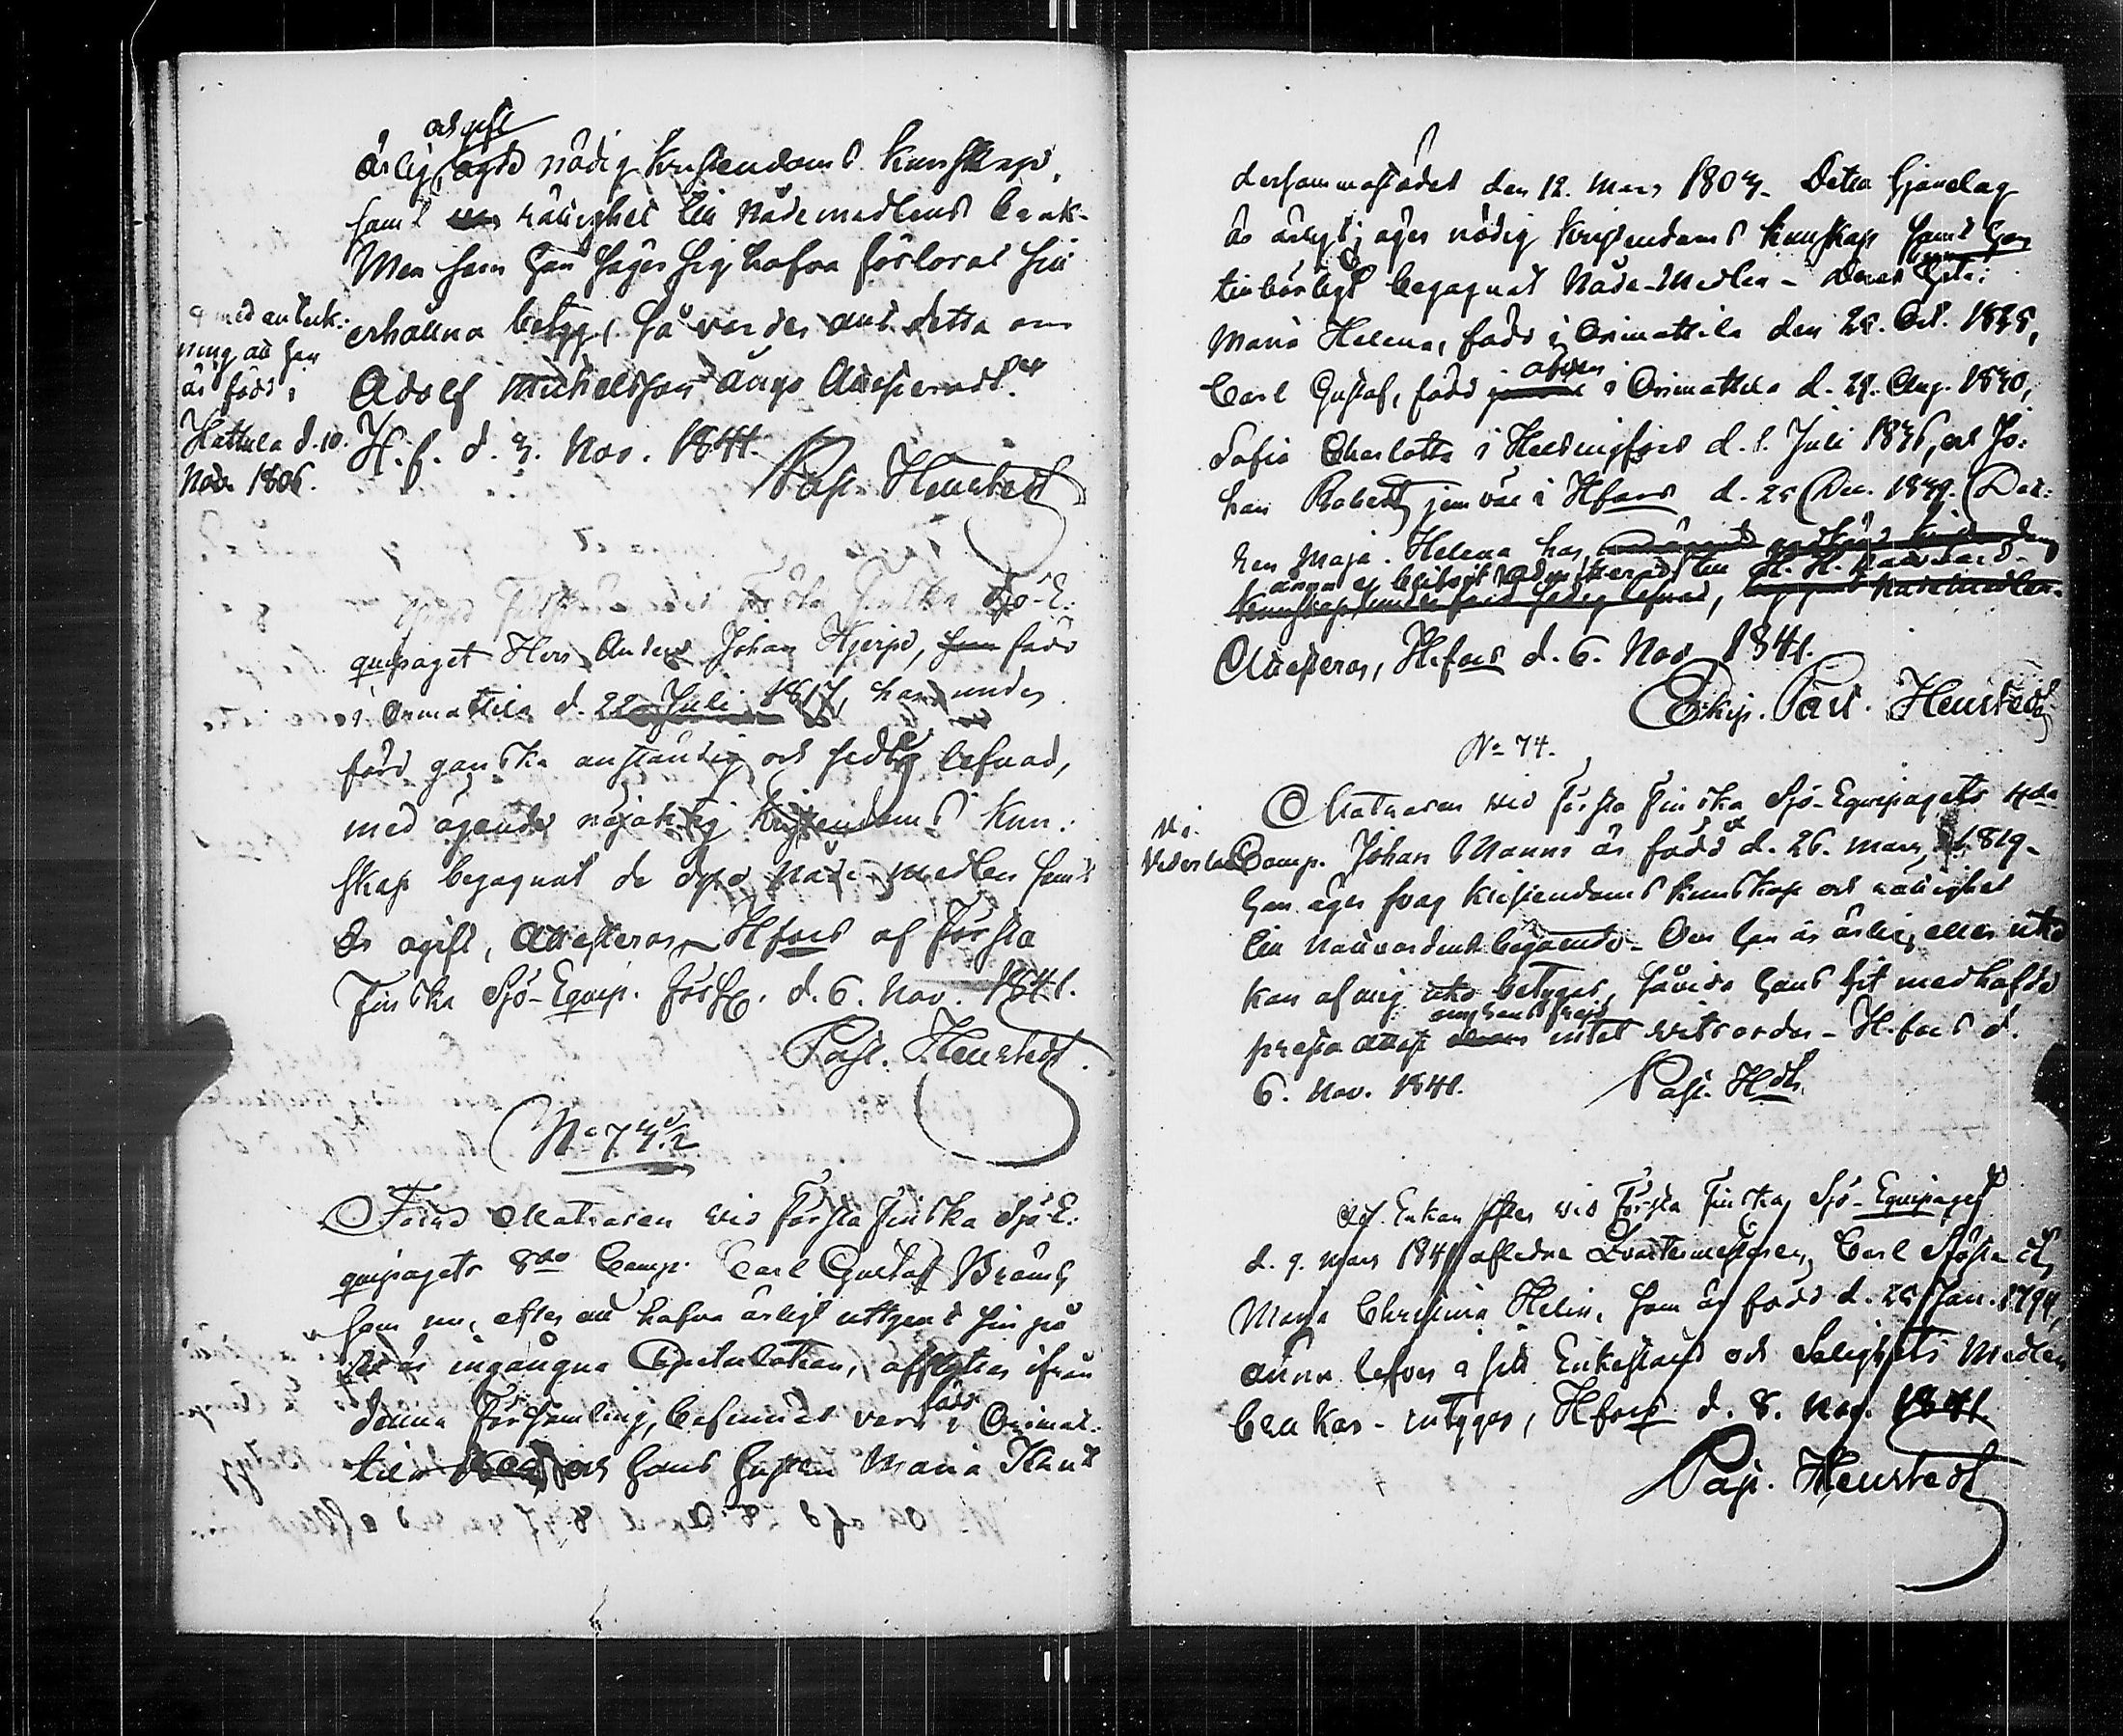 och gift
ärlig, ägde nödig Kristendoms kunskap,
samt rättighet till Nådemedlens bruk.
Men som han säger sig hafva förlorat sin
erhållna betyg, så varder ant detta om
Adolf Michelsson ånyo Attesteradt.
H.f. d. 3. Nov. 1841.
Past. Heurstedt
med anteck-
ning att han
är född i
Hattula d. 10.
Nov. 1806.
Sjö-E-
quipaget Herr Anders Johan Hjerpe, som född
i Orimattila d. 22 Juli 1817, har under
förd ganska anständig och sedlig lefnad,
med ägande nöjaktig Kristendoms kun-
skap begagnat de dyra Nåde-medlen samt
är ogift, Attesteras Hfors af Första
Finska Sjö-Equip. Förs. d. 6. Nov. 1841.
Past. Heurstedt.
No 73.
Förre Matrosen vid Första Finska Sjö-E-
quipagets 8de Comp. Carl Gustaf Bränn
som nu, efter att hafva ärligt uttjent sin på
år ingångna Capitulation, afflyttar ifrån
denna Församling, befinnes vara född i Orimat-
tila och hans hustru Maria
dersammastädes den 12. Mars 1803. Detta Hjonelag
är ärligt, äger nödig Kristendoms kunskap samt har
tillbörligt begagnat Nåde-Medlen - Deras barn:
Maria Helena, född i Orimattila den 28. Oct. 1828,
Carl Gustaf, född äfven i Orimattila d. 29. Aug. 1830,
Sofia Charlotta i Helsingfors d. 1. Juli 1836, och Jo-
han Robert, jemväl i Hfors d. 25 Dec. 1839. Dot-
tren Maja Helena har
ännu ej blifvit admitterad till H. H. Nattvard
Attesteras, H.fors d. 6. Nov 1841.
Ekip. Past. Heurstedt
No 74.
Matrosen vid Första Finska Sjö-Equipagets 4de
Comp. Johan Manns är född d. 26. Mars 1819.
i
Vederlax
Han äger svag Kristendoms kunskap och rättighet
till Nattvardens begående - Om han är ärlig, eller icke
kan af mig icke betygas, såvida hans hit medhafde
om hans frejd
presta attest intet vitsordar - H.fors d.
6. Nov. 1841.
Past. Hdt.
Att Enkan efter vid Första Finska Sjö-Equipaget
d. 9. Mars 1841 aflidne Qvartermästaren Carl Sjöste
Maria Christina Helin, som är född d. 25 Jan. 1794,
ännu lefver i sitt Enkestånd och Salighets Medlen
brukar - intygas, Hfors d. 8. Nov. 1841.
Past. Heurstedt